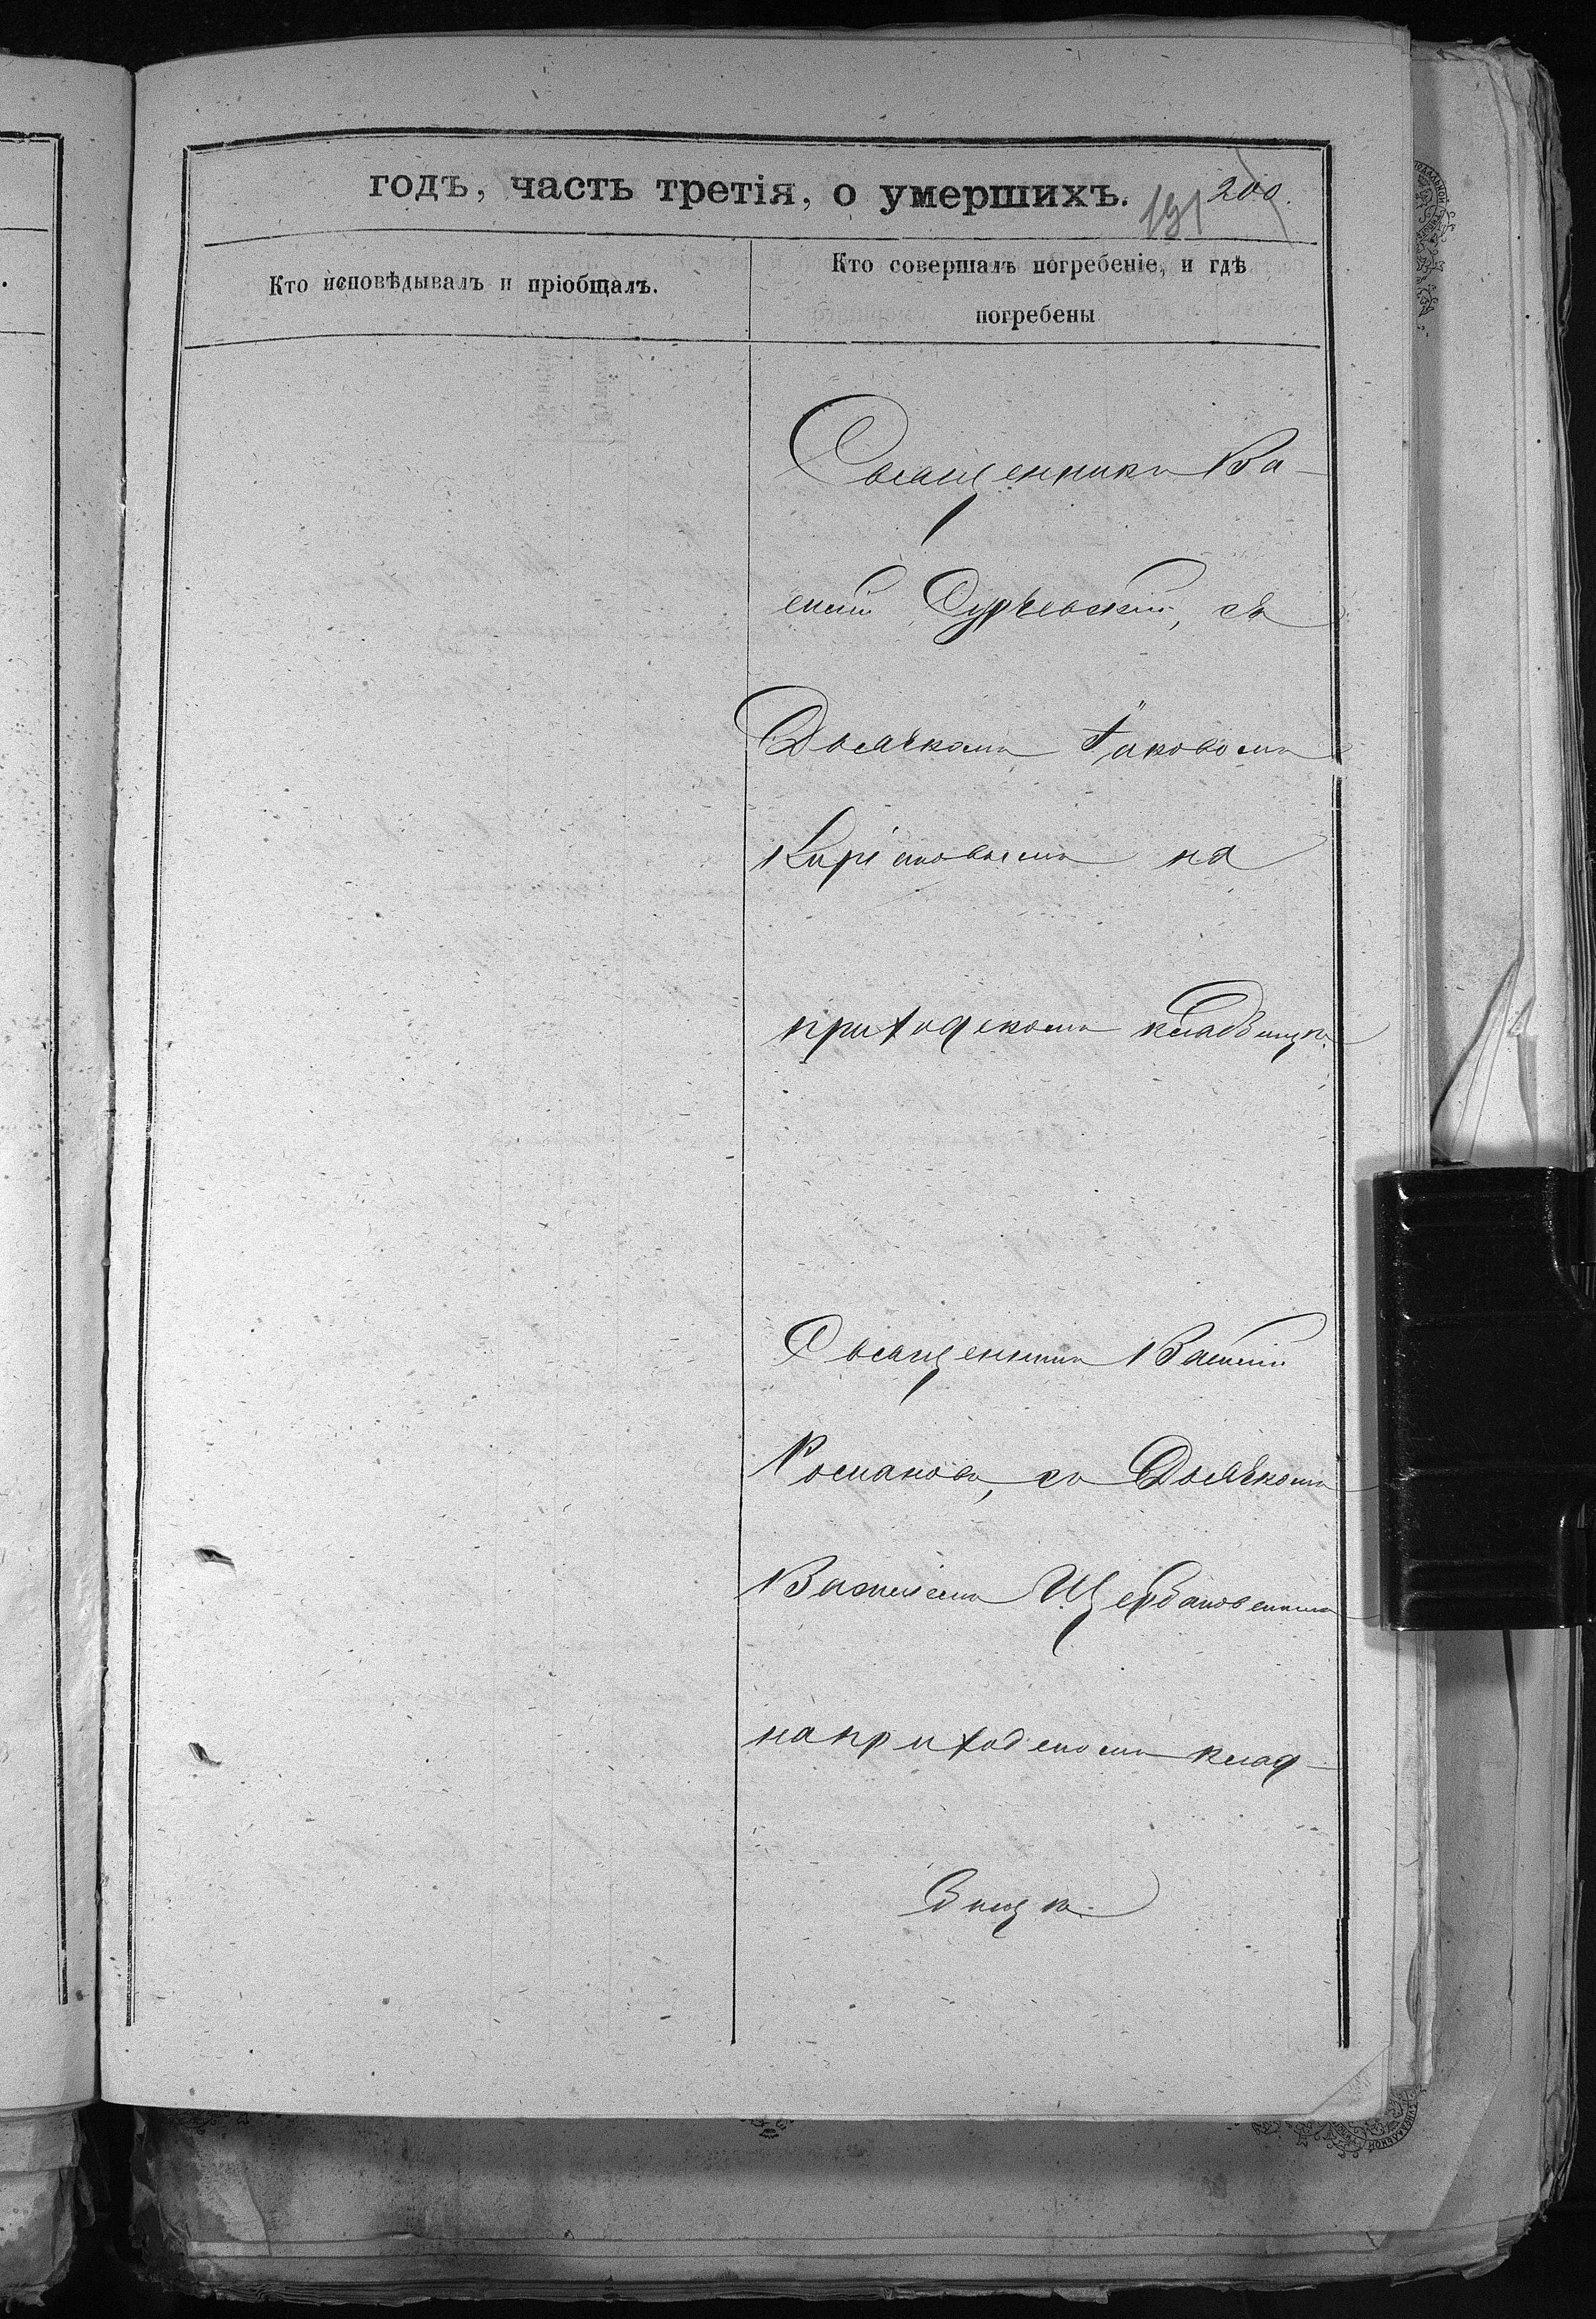 годъ, часть третія, о умершихъ. 191 200.
Кто исповѣдывалъ и пріобщалъ.
Кто совершалъ погребеніе, и гдѣ
погребены
Священникъ Ва-
силій Сурчевскій, съ
Дьячкомъ Іаковомъ
на
приходскомъ кладбищѣ.
Священникъ Василій
Романовъ, съ Дьячкомъ
Василіемъ Щербановскимъ
на приходскомъ клад-
бищѣ.